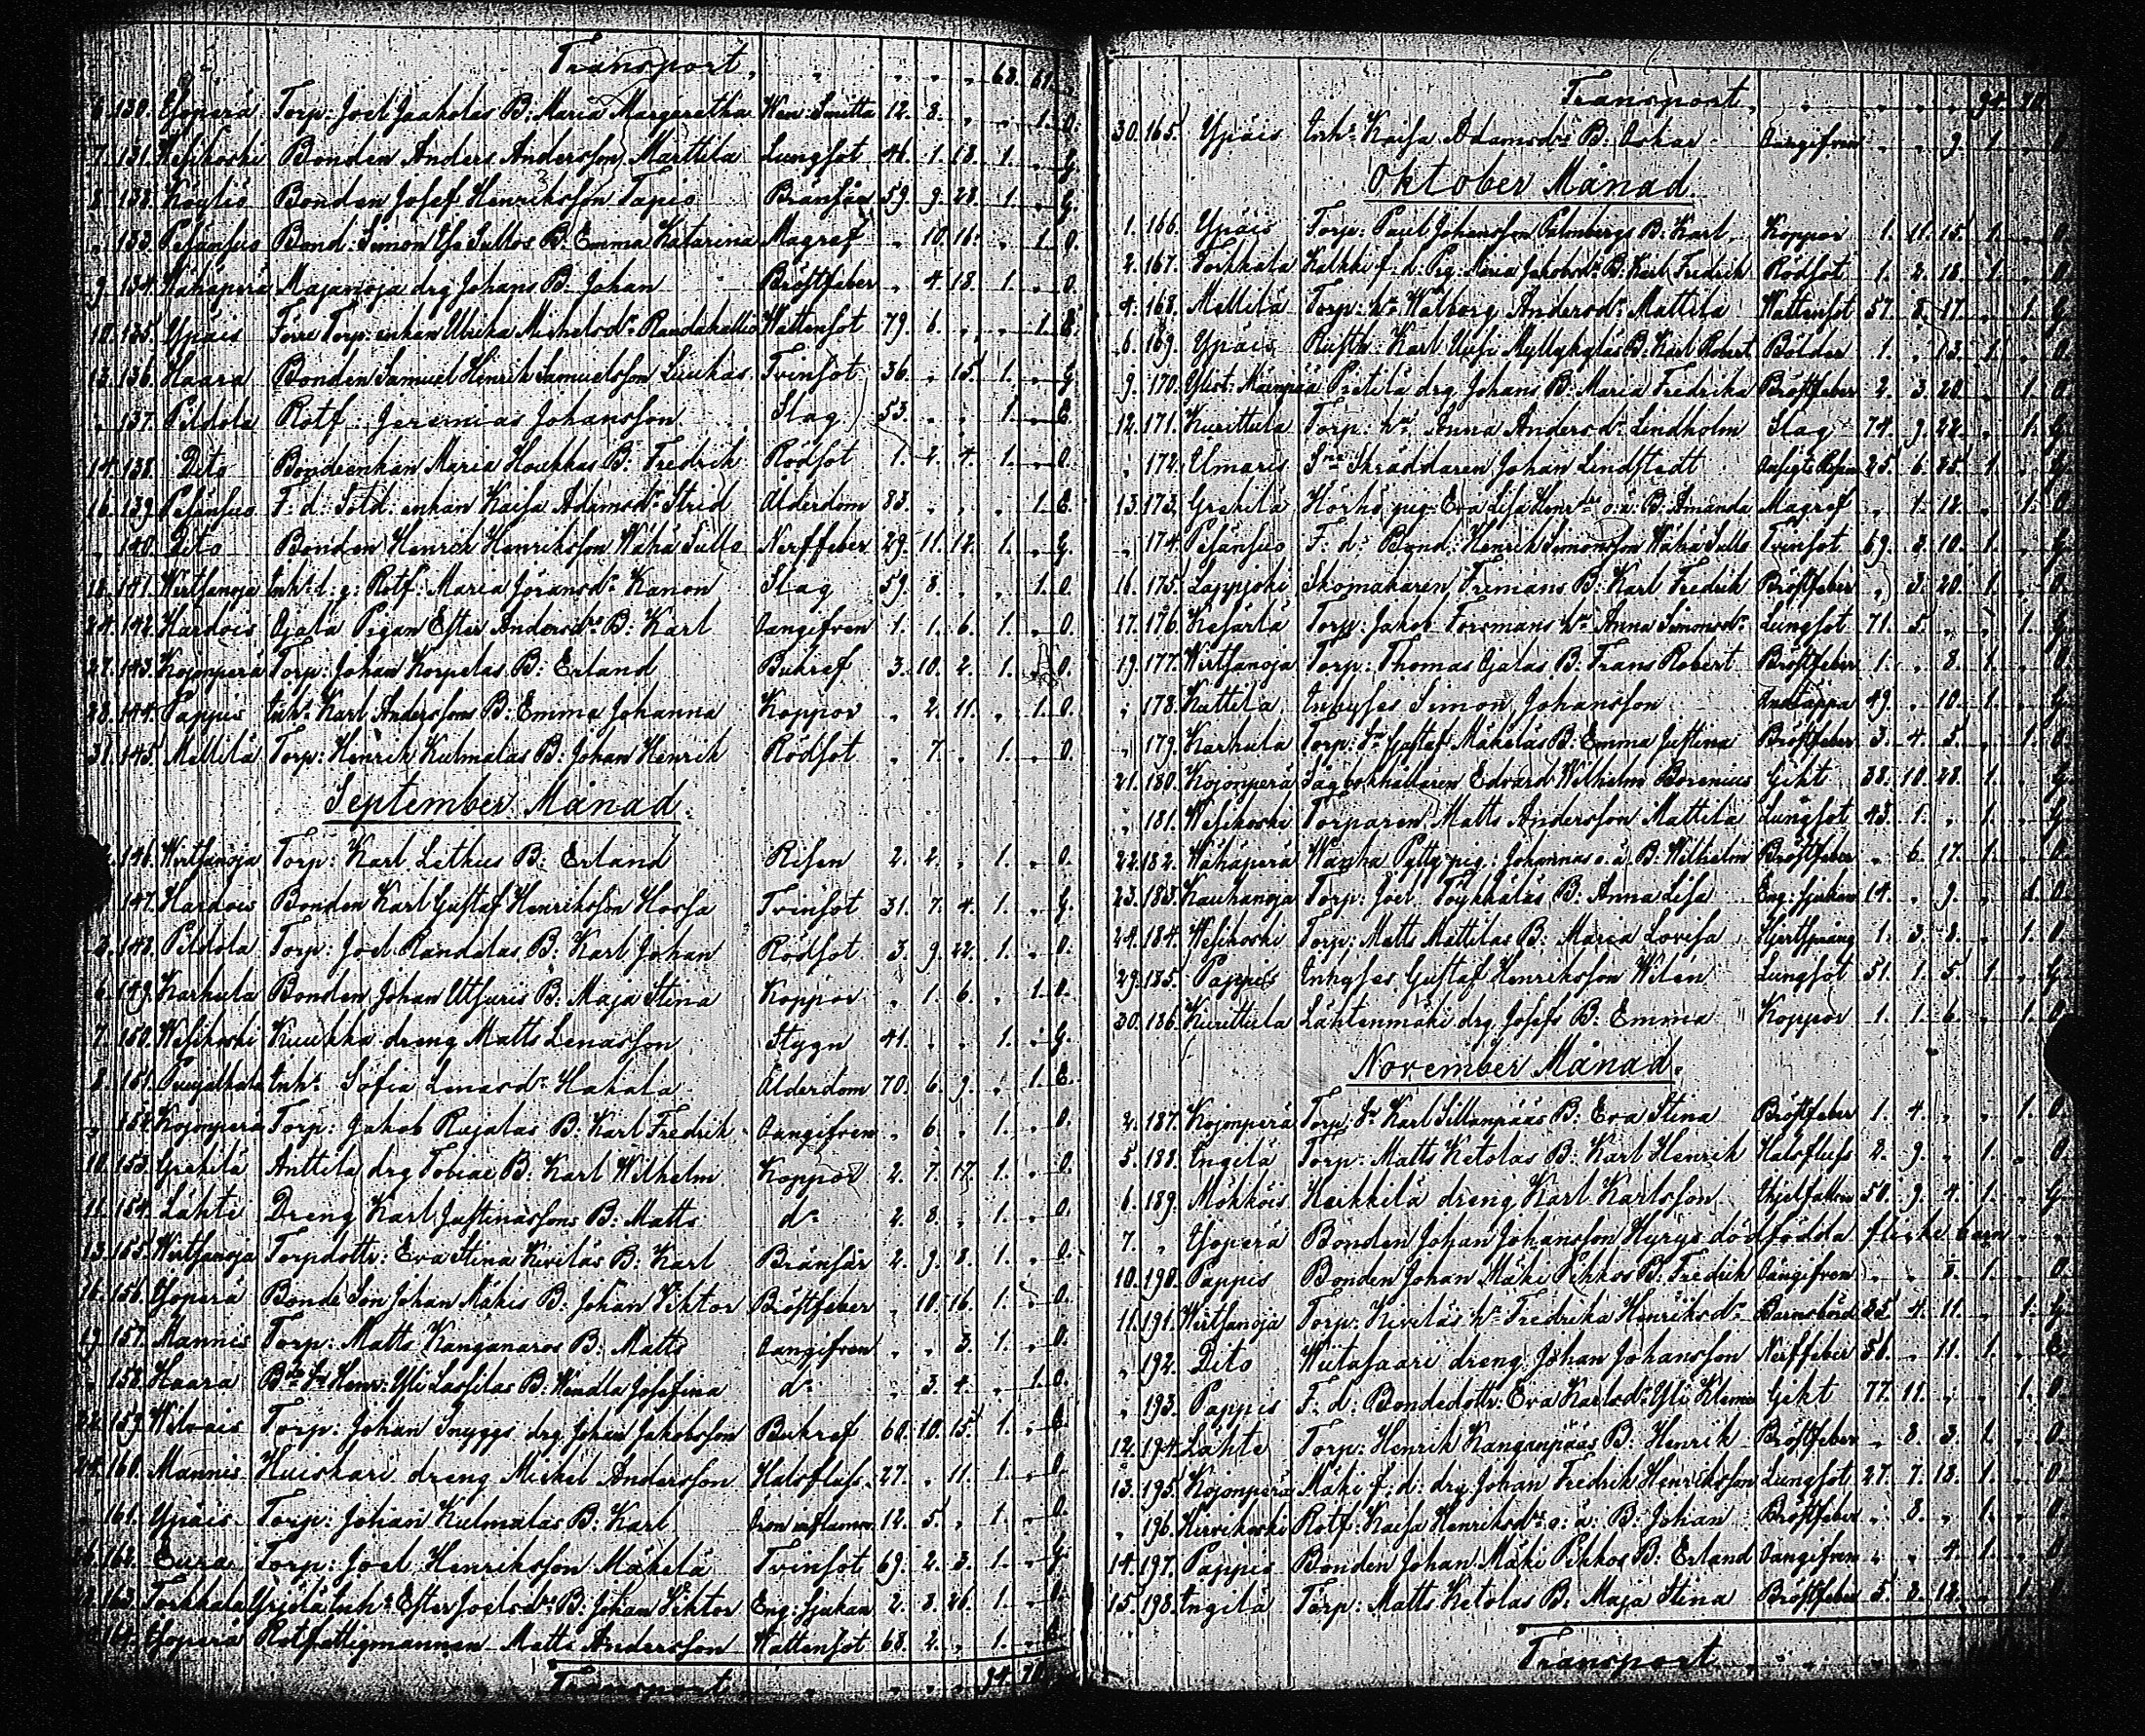 Transport „ „ „ „ 63. 61.
6. 130. Yöperä Torp: Joel Jaakolas B: Maria Margaretha 12. 8. „ „ 1. O.
7. 131. Wesikoski Bonden Anders Andersson Marttila Lungsot 41. 1. 18. 1. „ G.
8. 132. Köyliö Bonden Josef Henriksson Tapio Bränsår 59. 9. 28. 1. „ G.
„ 133. Pesänsuo Bond: Simon Iso Sullos B: Emma Katarina Magref „ 10. 16. „ 1. O.
9. 134. Wähäperä Majanoja drg Johans B: Johan Bröstfeber „ 4. 18. 1. „ O.
10. 135. Ypäis Förre Torp: enkan Ulrika Michelsdr Raudakallio Wattensot 79. 6. „ „ 1. E.
13. 136. Haara Bonden Samuel Henrik Samuelsson Luukas Tvinsot 36. „ 15. 1. „ G.
„ 137. Peldola Rotf: Jeremias Johansson Slag 53. „ „ 1. „ E.
14. 138. Dito Bondeenkan Maria Houkkas B: Fredrik Rödsot 1. 2. 4. 1. „ O.
16. 139. Pesänsuo F: d: Sold: enkan Kaisa Adamsdr Strid Ålderdom 83. „ „ „ 1. E.
„ 140. Dito Bonden Henrik Henriksson Wähä Sullo Nerffeber 29. 11. 12. 1. „ G.
18. 141. Wirtsanoja Inh: Rotf: Maria Göransdr Kanon Slag 59. 8. „ „ 1. O.
24. 142. Hardois Ojala Pigan Ester Andersdrs B: Karl Oangifven 1. 1. 6. 1. „ O.
27. 143. Kojonperä Torp: Johan Korpelas B: Erland Bukref 3. 10. 2. 1. „ O.
28. 144. Pappis Inhs Karl Anderssons B: Emma Johanna Koppor „ 2. 11. „ 1. O.
31. 145. Mellilä Torp: Henrik Kulmalas B: Johan Henrik Rödsot „ 7. „ 1. „ O.
September Månad.
146. Wirtsanoja Torp: Karl Lethus B: Erland Risen 2. 2. „ 1. „ O.
147. Hardois Bonden Karl Gustaf Henriksson Hossa Tvinsot 31. 7. 4. 1. „ G.
2. 148. Peldola Torp: Joel Randalas B: Karl Johan Rödsot 3. 9. 22. 1. „ O.
6. 149. Karhula Bonden Johan Uttsuris B: Maja Stina Koppor „ 1. 6. „ 1. O.
7. 150. Wesikoski Kuukka dreng Matts Lenasson Stygn 41. „ „ 1. „ G.
8. 151. Inhs Sofia Lenasdr Hakala Ålderdom 70. 6. 9. „ 1. E.
„ 152. Kojonperä Torp: Jakob Rajalas B: Karl Fredrik Oangifven „ 6. „ 1. „ O.
10. 153. Grekilä Anttila drg Tobiae B: Karl Wilhelm Koppor 2. 7. 17. 1. „ O.
11. 154. Lähte Dreng Karl Justinassons B: Matts do 2. 8. „ 1. „ O.
13. 155. Wirtsanoja Torpdottr: Eva Stina Kiviläs B: Karl Bränsår 2. 9. 8. 1. „ O.
16. 156. Yöperä Bonde Son Johan Mäkis B: Johan Viktor Bröstfeber „ 10. 16. 1. „ O.
19. 157. Mannis Torp: Matts Kanganaros B: Matts Oangifven „ „ 3. 1. „ O.
„ 158. Haara Bde Sn Henr: Yli Lassilas B: Wendla Josefina do „ 3. 4. „ 1. O.
22. 159. Torp: Johan Snyggs drg Johan Jakobsson Bukref 60. 10. 15. 1. „ E.
24. 160. Mannis Huiskari dreng Mickel Andersson Halsfluss 27. „ 11. 1. „ O.
„ 161. Ypäis Torp: Johan Kulmalas B: Karl 12. 5. „ 1. „ O.
26. 162. Eura Torp: Joel Henriksson Mäkelä Tvinsot 69. 2. 3. 1. „ G.
163. Torkkala Yrjölä Inhs Ester Joelsdrs B: Johan Viktor Eng: sjukan 2. 8. 26. 1. „ O.
164. Yöperä Rotfattigmannen Matts Andersson Wattensot 68. 2. „ 1. „ E.
Transport „ „ „ „ 94. 70.
Transport „ „ „ „ 94. 70.
30. 165. Ypäis Inhs Kaisa Adamsdrs B: Oskar Oangifven „ „ 9. 1. „ O.
Oktober Månad.
1. 166. Ypäis Torp: Paul Johansson Palmbergs B: Karl Koppor 1. 11. 15. 1. „ O.
2. 167. Torkkala Kalkki f: d: Pig: Maria Jakobsdrs B: Karl Fredrik Rödsot 1. 2. 18. 1. „ O.
4. 168. Mellilä Torp: hu Walborg Andersdr Mattila Wattensot 57. 8. 17. „ 1. G.
6. 169. Ypäis Rusth: Karl Uusi Myllykyläs B: Karl Robert Bölder 1. „ 13. 1. „ O.
9. 170. Ylist: Männpää Prttilä drg Johans B: Maria Fredrika Bröstfeber 2. 3. 20. „ 1. O.
12. 171. Kurittula Torp: hu Anna Andersdr Lindholm Slag 74. 9. 22. „ 1. G.
„ 172. Ulmaris Skräddaren Johan Lindstedt Ansigts Rosen 25. 6. 25. 1. „ G.
13. 173. Grekilä Hörhö pig: Eva Lisa Henrdrs o: ä: B: Amanda Magref „ 1. 12. „ 1. O.
„ 174. Pesänsuo F: d: Bond: Henrik Simonsson Wähä Sullo Tvinsot 69. 8. 10. 1. „ G.
16. 175. Lappjoki Skomakaren Fremans B: Karl Fredrik Bröstfeber „ 3. 20. 1. „ O.
17. 176. Kesärlä Torp: Jakob Forsmans hu Anna Simonsdr Lungsot 71. 5. „ „ 1. G.
19. 177. Wirtsanoja Torp: Thomas Ojalas B: Frans Robert Bröstfeber 1. „ 8. 1. „ O.
„ 178. Kattila Inhyses Simon Johansson Andtäppa 49. „ 10. 1. „ G.
„ 179. Karhula Torp: Sn Gustaf Mäkeläs B: Emma Justina Bröstfeber 3. 4. 5. „ 1. O.
21. 180. Kojonperä Sågbokhållaren Edvard Wilhelm Borenius Gikt 38. 10. 28. 1. „ G.
„ 181. Wesikoski Torparen Matts Andersson Mattila Lungsot 43. 1. „ 1. „ G.
22. 182. Wähäperä Wanha Pytty pig: Johannas o: ä: B: Wilhelm Bröstfeber „ 6. 17. 1. „ O.
23. 183. Kauhanoja Torp: Joel Töykkäläs B: Anna Lisa Eng: sjukan 14. „ 9. „ 1. O.
24. 184. Wesikoski Torp: Matts Mattilas B: Maria Lovisa Hjertspräng 1. 3. 8. „ 1. O.
29. 185. Pappis Inhyses Gustaf Henriksson Wilen Lungsot 51. 1. 5. 1. „ G.
30. 186. Kurittula Lähtenmäki drg Josefs B: Emma Koppor 1. 1. 6. „ 1. O.
November Månad.
2. 187. Kojonperä Torp: Sn Karl Sillanpääs B: Eva Stina Bröstfeber 1. 4. „ „ 1. O.
5. 188. Ingilä Torp: Matts Ketolas B: Karl Henrik Halsfluss 2. 9. „ 1. „ O.
6. 189. Mökköis Heikkilä dreng Karl Karlsson Ihjelfallen 50. 9. 4. 1. „ G.
7. „ Yöperä Bonden Johan Johansson Hyrys dödfödda flicke barn „ „
10. 190. Pappis Bonden Johan Mäki Pihkos B: Fredrik Oangifven „ „ 1. „ O.
11. 191. Wirtsanoja Torp: Kiviläs hu Fredrika Henriksdr Barnsbörd 35. 4. 11. „ 1. G.
„ 192. Dito Wiitasaari dreng Johan Johansson Nerffeber 51. „ 11. 1. „ E.
„ 193. Pappis F: d: Bondedottr: Eva Karlsdr Yli Klemo Gikt 77. 11. „ „ 1. O.
12. 194. Lähte Torp: Henrik Kanganpääs B: Henrik Bröstfeber „ 8. 3. 1. „ O.
13. 195. Kojonperä Mäki f: d: drg Johan Fredrik Henriksson Lungsot 27. 7. 18. 1. „ O.
„ 196. Hirvikoski Rotf: Kaisa Henriksdrs o: ä: B: Johan Bröstfeber „ 8. „ 1. „ O.
14. 197. Pappis Bonden Johan Mäki Pihkos B: Erland Oangifven „ „ 4. 1. „ O.
15. 198. Ingilä Torp: Matts Ketolas B: Maja Stina Bröstfeber 5. 8. 12. „ 1. O.
Transport „ „ „